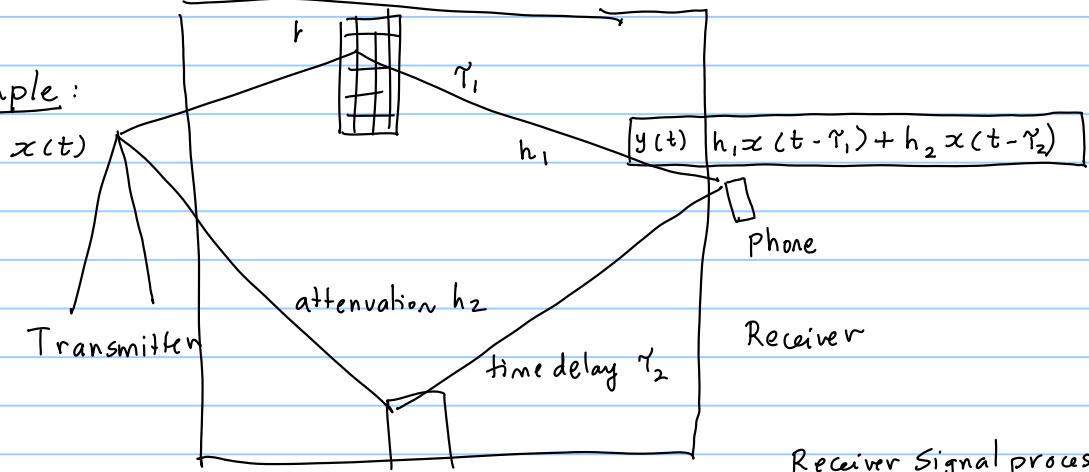 mple :
x(t)
τ₁
h₁
y(t) h₁x(t-τ₁) + h₂ x(t-τ₂)
phone
attenuation h₂
Transmitter
Receiver
time delay τ₂
Receiver Signal proces